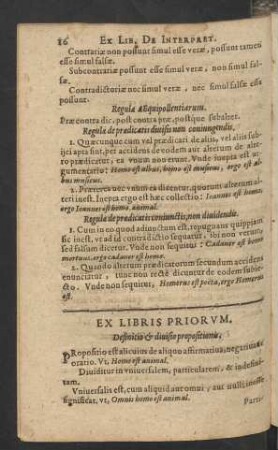 86 EX LIB. DE INTERPRET.
Contrariæ non possunt simul esse veræ, possunt tamen
esse simul falsæ.
Subcontrariæ possunt esse simul veræ, non simul fal-
sæ.
Contradictoriæ nec simul veræ, nec simul falsæ esse
possunt.
Regula Æquipollentiarum.
Præ contra dic. post contra præ. postque subalter.
Regula de prædicatis divisis non coniungendis.
1. Quæcunque cum val prædicari de aliis, vel aliis sub-
iici apta sint, per accidens de eodem aut alterum de alte-
ro prædicatur, ex vnum non erunt. Vnde inepta est ar-
gumentatio: Homo est albus, homo est musicus, ergo est al-
bus musicus.
2. Præterea nec vnum ea dicentur, quorum alterum in
altero inest. Inepta ergo est hæc collectio: Ioannes est homo
ergo Ioannes est homo, animal.
Regula de prædicatis coniunctis, non dividendis.
1. Cum in eo quod adiunctum est, repugnans quippiam
sic inest, vt ad id contradictio sequatur, ibi non verum
sed falsum dicetur. Vnde non sequitur: Cadauer est homo
mortuus, ergo cadauer est homo.
2. Quando alterum prædicatorum secundum accidens
enunciatur, tunc non recte dicuntur de eodem subie-
cto. Vnde non sequitur, Homerus est poeta, ergo Homerus
est.
EX LIBRIS PRIORVM.
Definitio & divisio propositionis.
PRopositio est alicuius de aliquo affirmatiua, negatiuave
oratio. Vt, Homo est animal.
Diuiditur in vniuersalem, particularem, & indefini-
tam.
Vniuersalis est, cum aliquid aut omni, aut nulli inesse
significat. vt, Omnis homo est animal.
Parti-